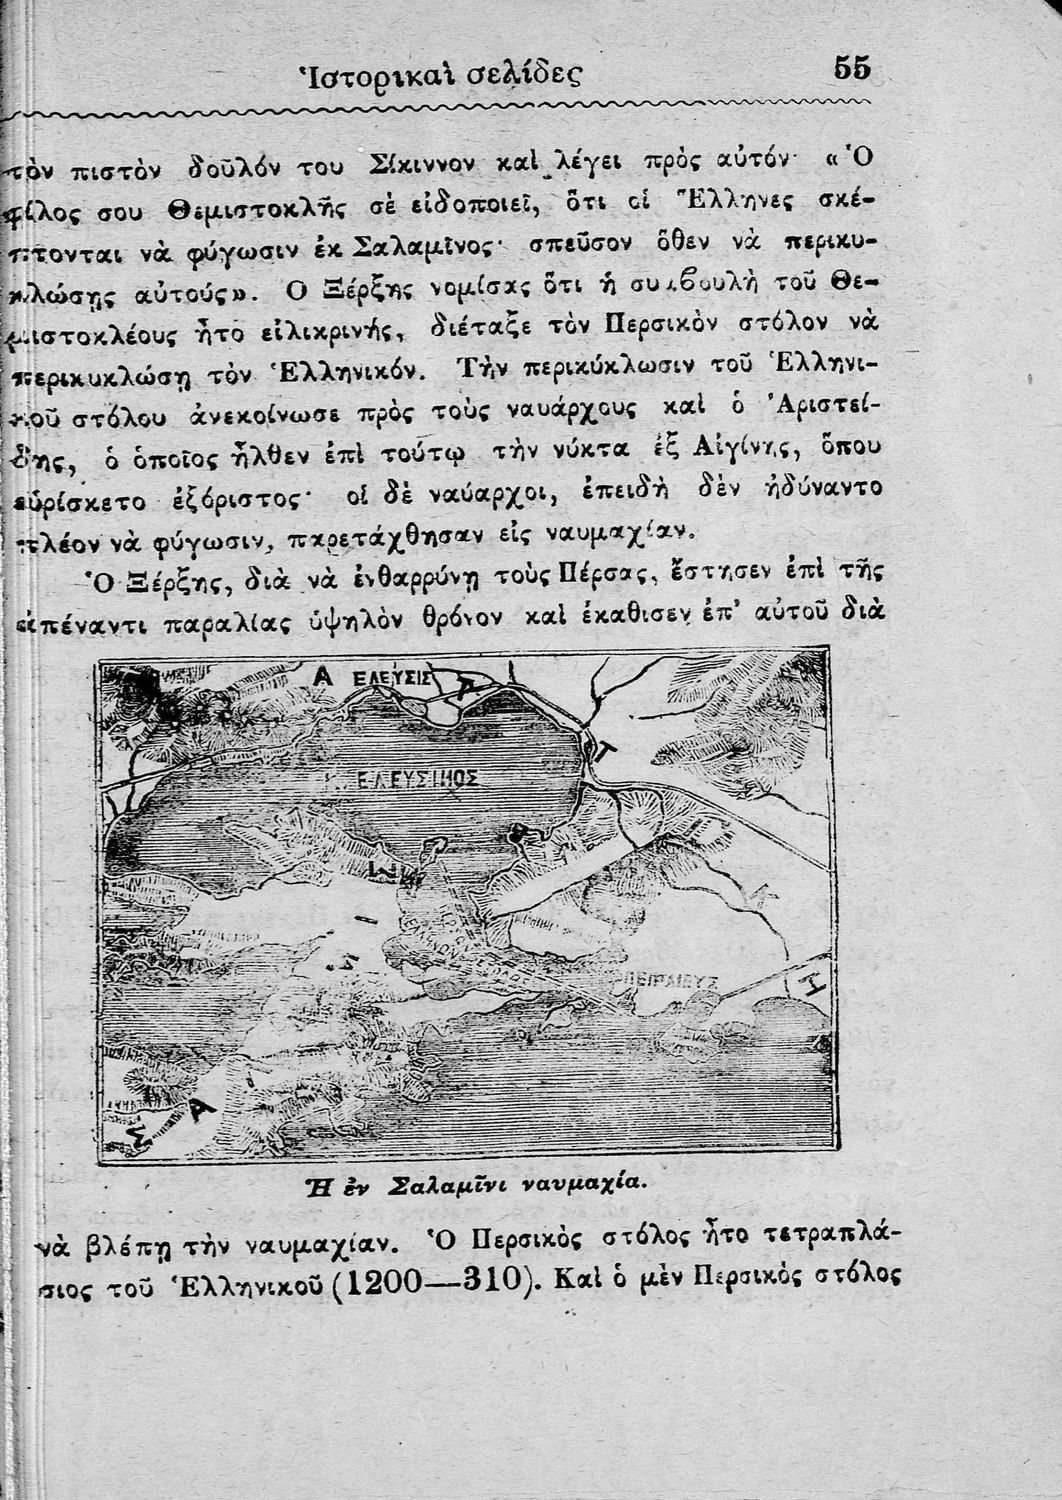 Ἱστορικαὶ σελίδες 55
τὸν πιστὸν δοῦλόν του Σίκιννον καὶ λέγει πρὸς αὐτόν· «Ὁ
φίλος σου Θεμιστοκλῆς σὲ εἰδοποιεῖ, ὅτι οἱ Ἕλληνες σκέ-
πτονται νὰ φύγωσιν ἐκ Σαλαμῖνος· σπεῦσον ὅθεν νὰ περικυ-
κλώσῃς αὐτούς». Ὁ Ξέρξης νομίσας ὅτι ἡ συμβουλὴ τοῦ Θε-
μιστοκλέους ἦτο εἰλικρινής, διέταξε τὸν Περσικὸν στόλον νὰ
περικυκλώσῃ τὸν Ἑλληνικόν. Τὴν περικύκλωσιν τοῦ Ἑλληνι-
κοῦ στόλου ἀνεκοίνωσε πρὸς τοὺς ναυάρχους καὶ ὁ Ἀριστεί-
δης, ὁ ὁποῖος ἦλθεν ἐπὶ τούτῳ τὴν νύκτα ἐξ Αἰγίνης, ὅπου
εὑρίσκετο ἐξόριστος· οἱ δὲ ναύαρχοι, ἐπειδὴ δὲν ἠδύναντο
πλέον νὰ φύγωσιν, παρετάχθησαν εἰς ναυμαχίαν.
Ὁ Ξέρξης, διὰ νὰ ἐνθαρρύνῃ τοὺς Πέρσας, ἔστησεν ἐπὶ τῆς
ἀπέναντι παραλίας ὑψηλὸν θρόνον καὶ ἐκάθισεν ἐπ' αὐτοῦ διὰ
Α ΕΛΕΥΣΙΣ
Τ
ΕΛΕΥΣΙΝΟΣ
Κ
ΠΕΙΡΑΙΕΥΣ
Η
Α
Σ
Ἡ ἐν Σαλαμῖνι ναυμαχία.
νὰ βλέπῃ τὴν ναυμαχίαν. Ὁ Περσικὸς στόλος ἦτο τετραπλά-
σιος τοῦ Ἑλληνικοῦ (1200—310). Καὶ ὁ μὲν Περσικὸς στόλος